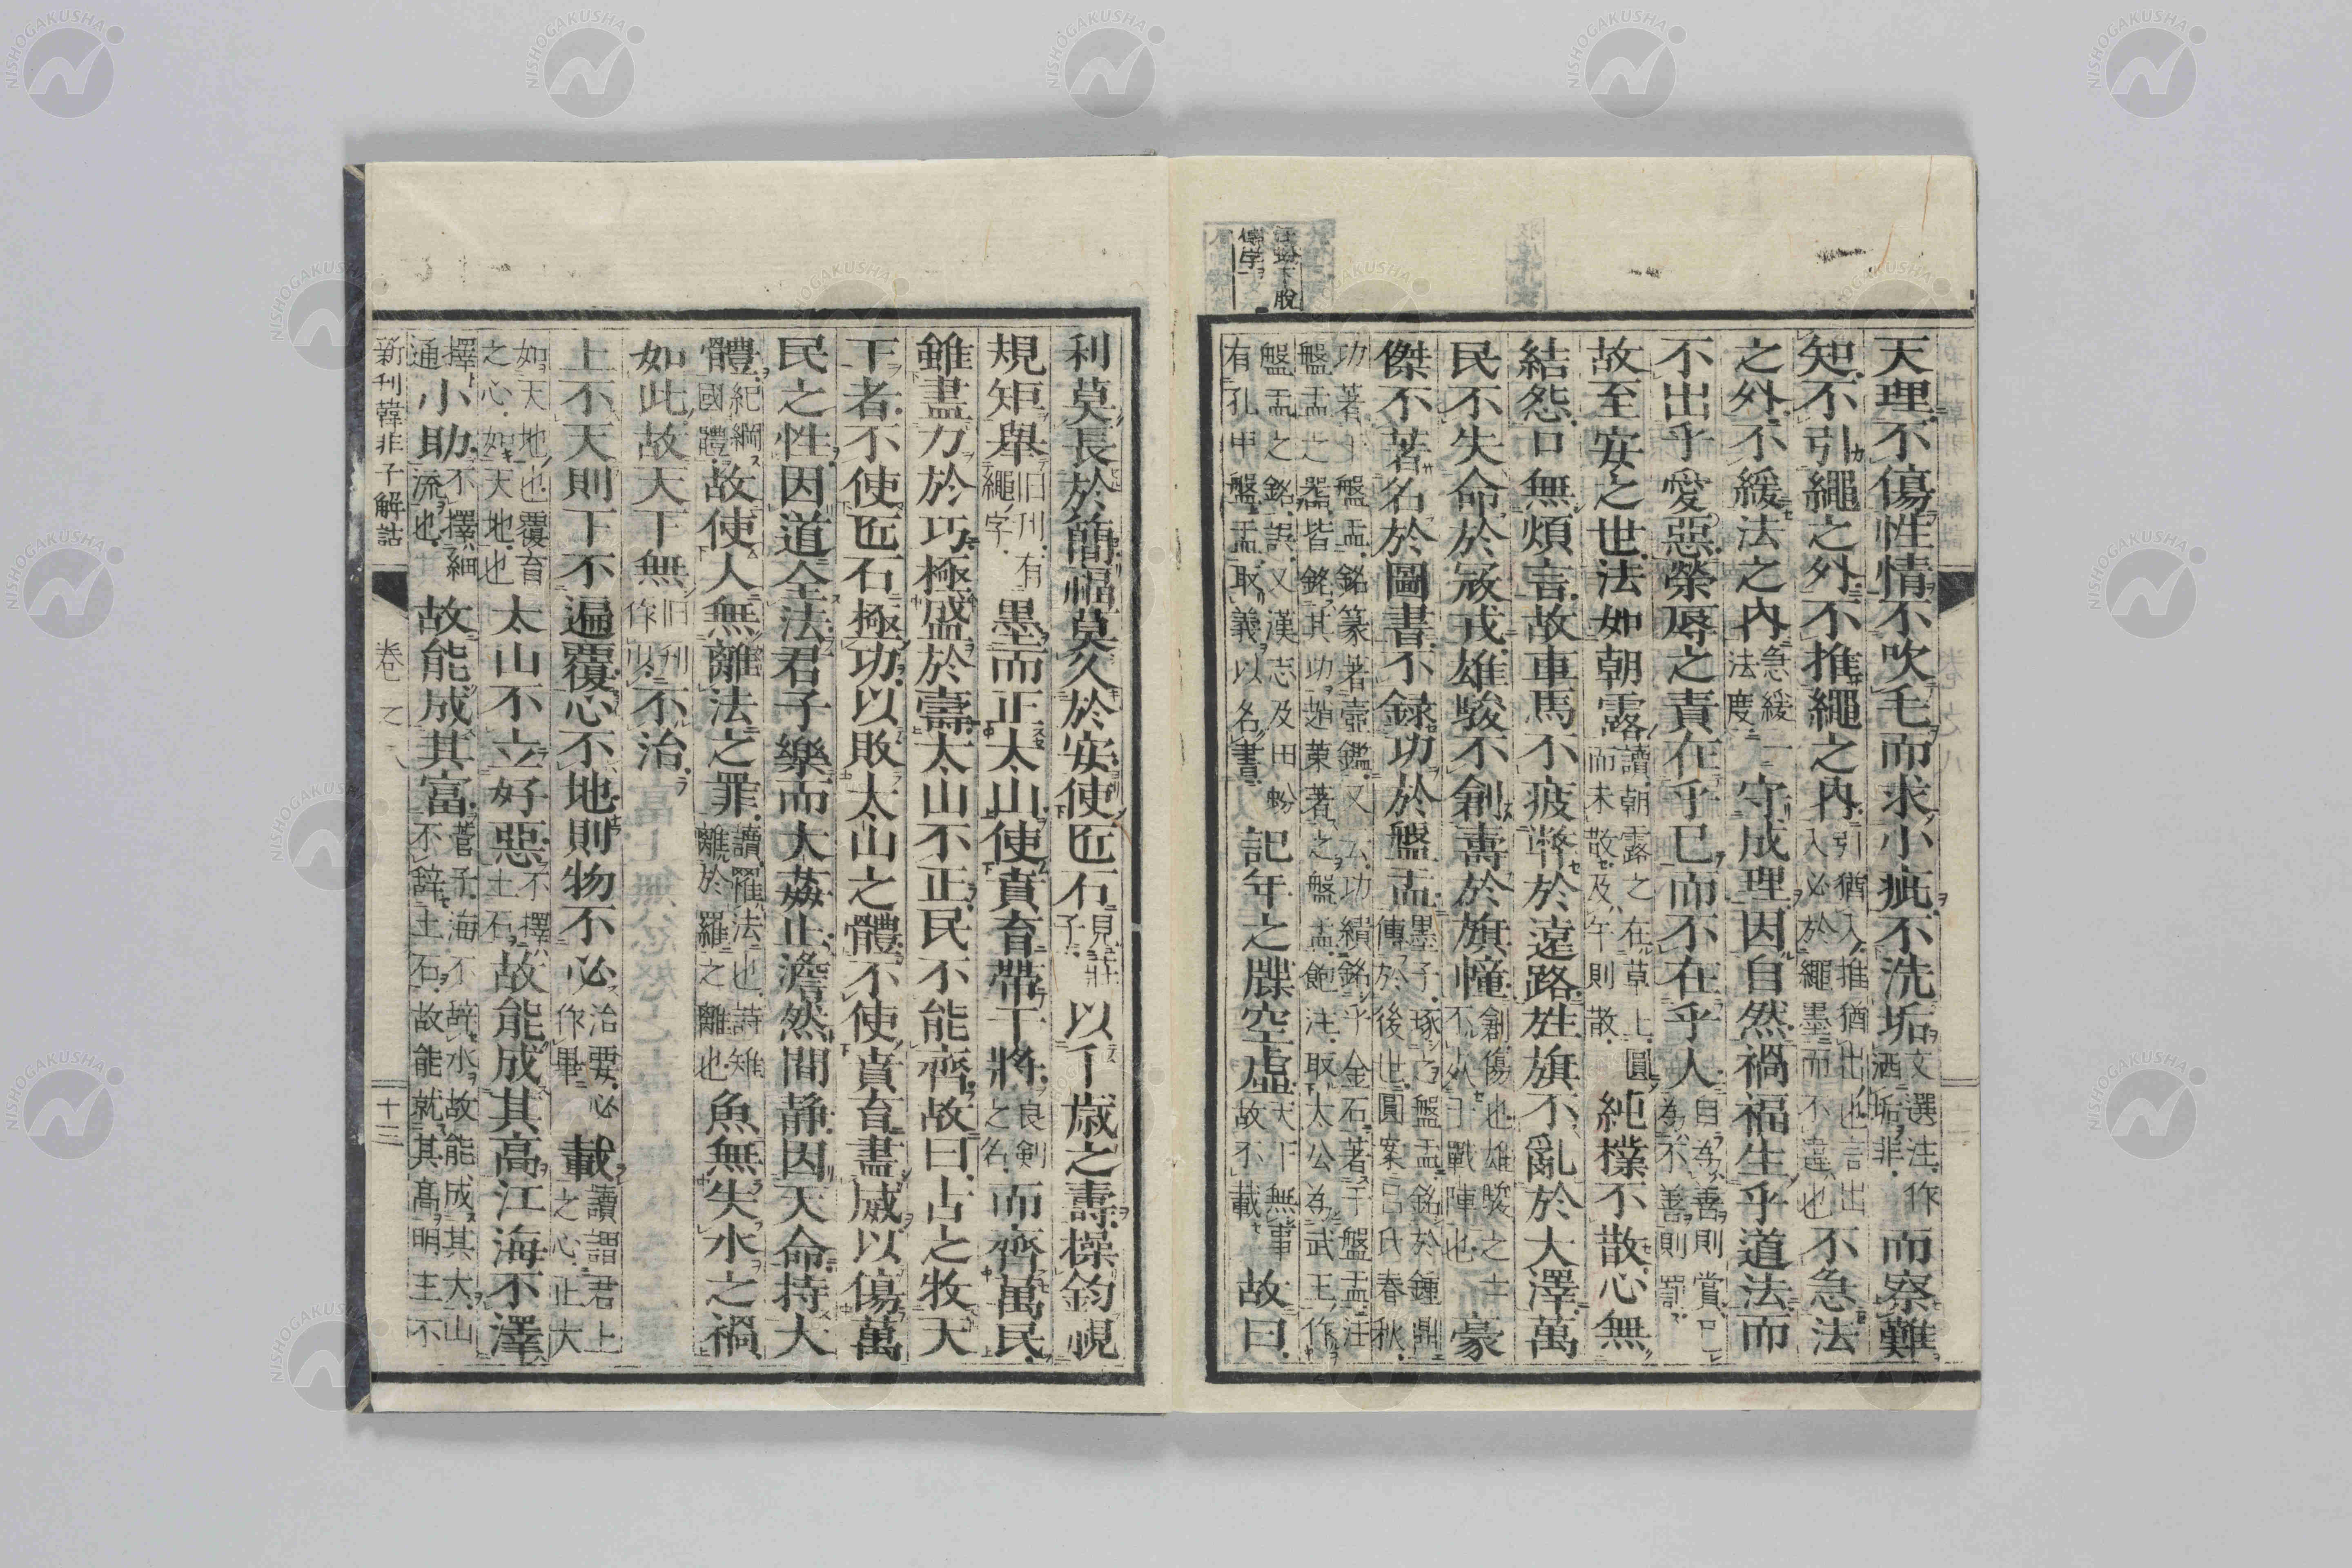 天理不傷性情不吹毛而求小疵不洗垢文選注作洒垢非而察難
知不引繩之外不推繩之內引猶入推猶出也言出入必於繩墨而不違也不急法
之外不緩法之內急緩一法度守成理因自然禍福生乎道法而
不出乎愛惡榮辱之責在乎己而不在乎人自為善則賞自為不善則罰
故至安之世法如朝露讀朝露之在草上圓而未散及午則散純樸不散心無
結怨口無煩言故車馬不疲弊於遠路旌旗不亂於大澤萬
民不失命於寇戎雄駿不創壽於旗幢創傷也雄駿之士不從于戰陣也豪
傑不著名於圖書不錄功於盤盂墨子琢之盤盂銘於鍾鼎傳於後世圓案呂氏春秋
功著乎盤盂銘篆著壺鑑又云功績銘乎金石著于盤盂注盤盂之器皆銘其功趙策著之盤盂鮑注取太公為武王作
盤盂之銘誤又漢志及田蚡有孔甲盤盂取義以名書記年之牒空虛天下無事故不載故曰
注蚡下脫
傳字
利莫長於簡福莫久於安使匠石見莊子以千歲之壽操鈞視
規矩舉旧刊有繩字墨而正太山使賁育帶干將良剣之名而齊萬民
雖盡力於巧極盛於壽太山不正民不能齊故曰古之牧天
下者不使匠石極功以敗太山之體不使賁育盡威以傷萬
民之性因道全法君子樂而大姦止澹然間静因天命持大
體紀綱國體故使人無離法之罪讀罹法也詩雉離於羅之離也魚無失水之禍
如此故天下無旧刊作以不治
上不天則下不遍覆心不地則物不必治要必作畢載讀謂君上之心止大
如天地也覆育之心如天地也太山不立好惡不擇土石故能成其高江海不澤
擇小助不擇細流也通故能成其富菅子海不辞水故能成其大山不辞土石故能就其高明主不
新刊韓非子解詁 卷之八 十三